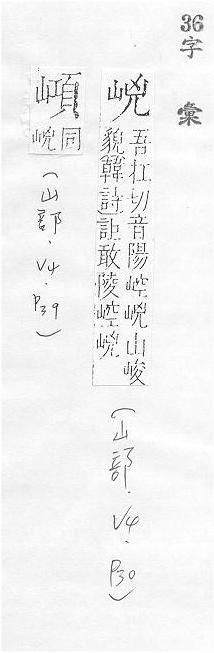 36
字彙
㟅
吾杠切音陽崆㟅山峻
貌韓詩詎敢陵崆㟅
(山部.V4.P30)
同
㟅
(山部.V4.P39)